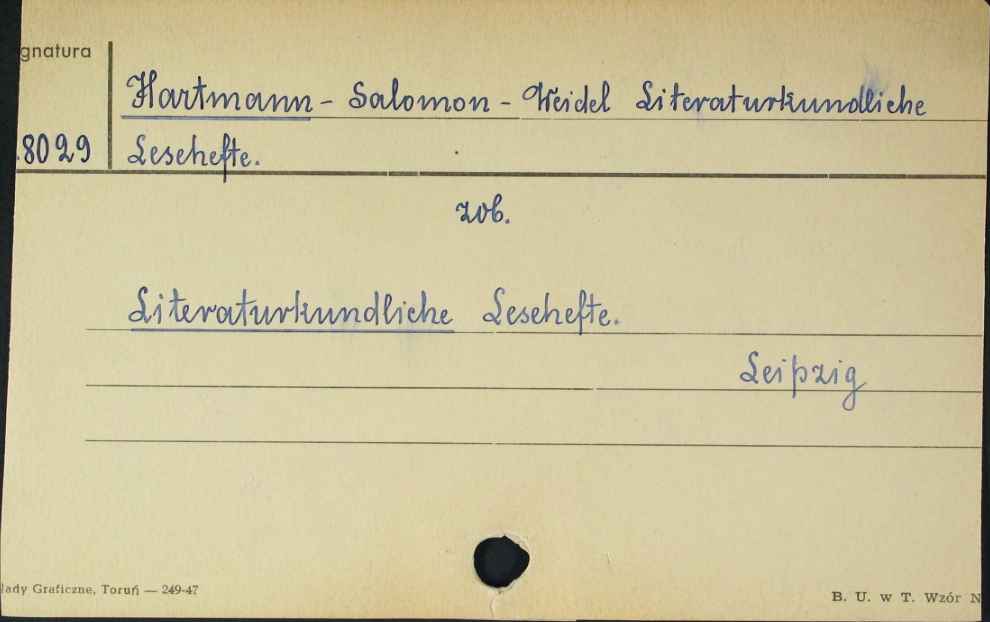 gnatura
Hartmann - Salomon - Weidel Literaturkundliche
.8029 Lesehefte.
zob.
Literaturkundliche Lesehefte.
Leipzig
łady Graficzne, Toruń — 249-47
B. U. w T. Wzór N